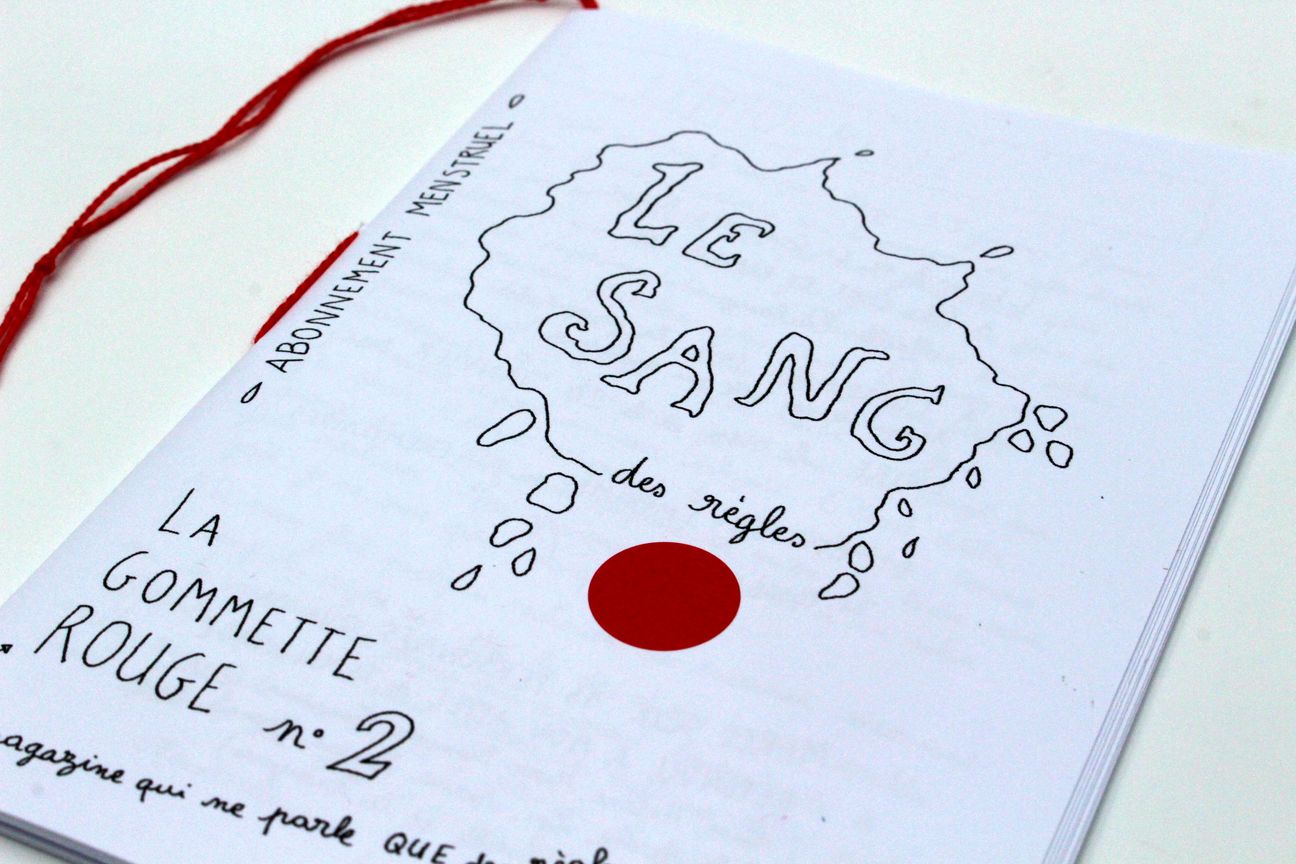 ABONNEMENT MENSTRUEL
LE
SANG
des règles
LA
GOMMETTE
ROUGE n° 2
qui ne parle QUE